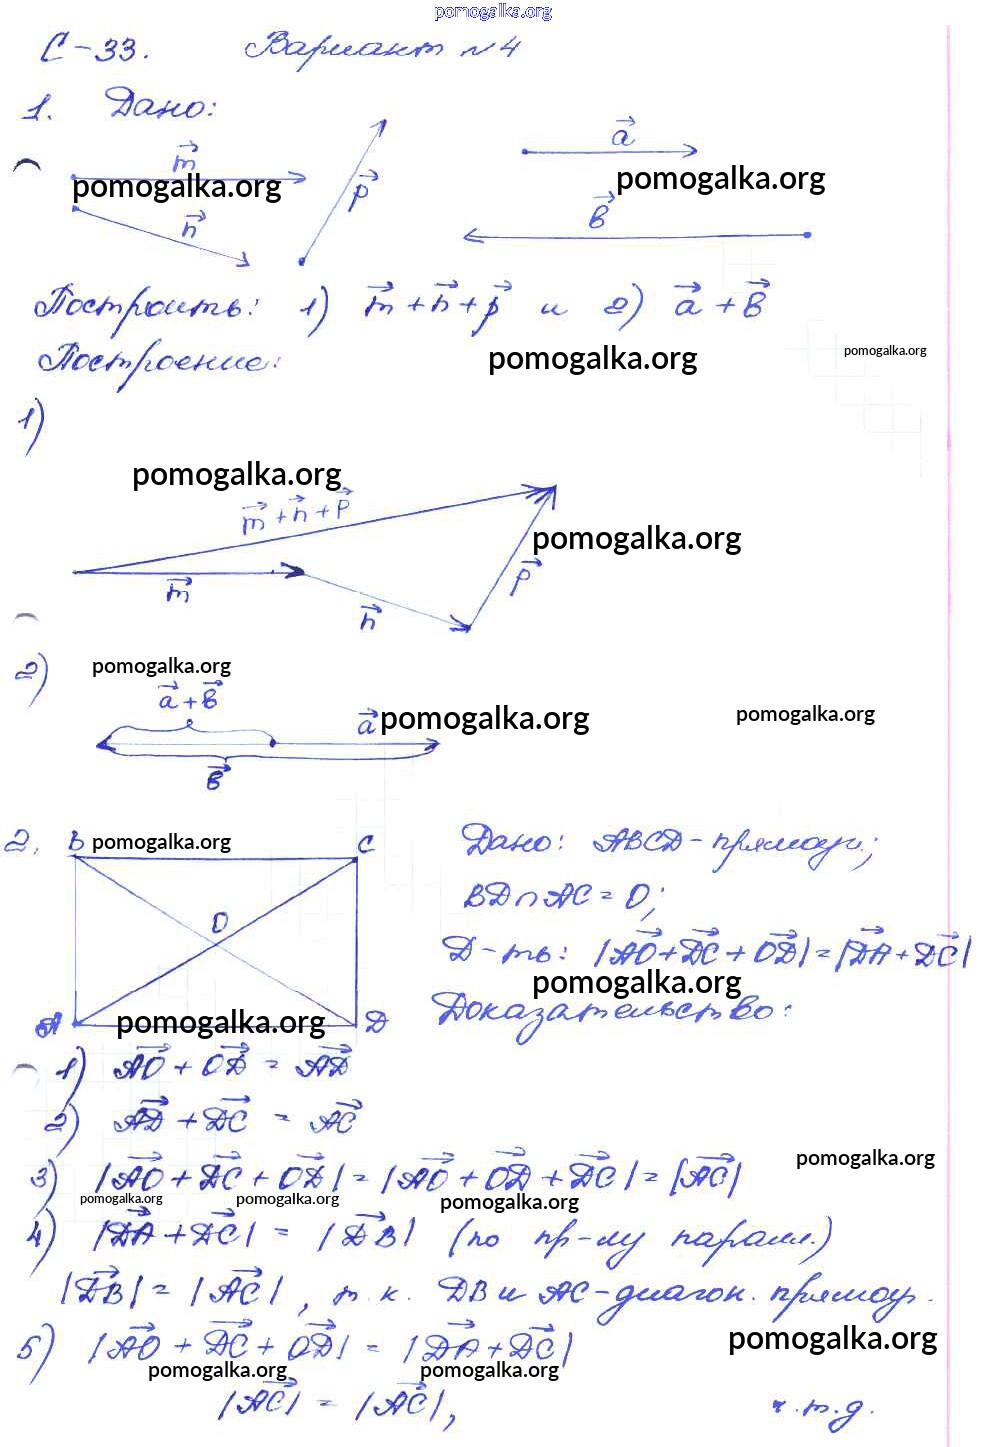 pomogalka.org
С-33. Вариант №4
1. Дано:
m⃗ p⃗ a⃗
pomogalka.org pomogalka.org
n⃗ b⃗
Построить: 1) m⃗ + n⃗ + p⃗ и 2) a⃗ + b⃗
Построение: pomogalka.org pomogalka.org
1)
pomogalka.org
m⃗ + n⃗ + p⃗
pomogalka.org
m⃗ n⃗ p⃗
2) pomogalka.org
a⃗ + b⃗
a⃗ pomogalka.org pomogalka.org
b⃗
2. B pomogalka.org C Дано: ABCD - прямоуг.;
BD∩AC = O;
O
Д-ть: |AO⃗ + DC⃗ + OD⃗| = |DA⃗ + DC⃗|
pomogalka.org
A pomogalka.org D Доказательство:
1) AO⃗ + OD⃗ = AD⃗
2) AD⃗ + DC⃗ = AC⃗
3) |AO⃗ + DC⃗ + OD⃗| = |AO⃗ + OD⃗ + DC⃗| = |AC⃗| pomogalka.org
pomogalka.org pomogalka.org pomogalka.org
4) |DA⃗ + DC⃗| = |DB⃗| (по пр-лу паралл.)
|DB⃗| = |AC⃗|, т.к. DB и AC - диагон. прямоуг.
pomogalka.org
5) |AO⃗ + DC⃗ + OD⃗| = |DA⃗ + DC⃗|
pomogalka.org pomogalka.org
|AC⃗| = |AC⃗|, ч.т.д.